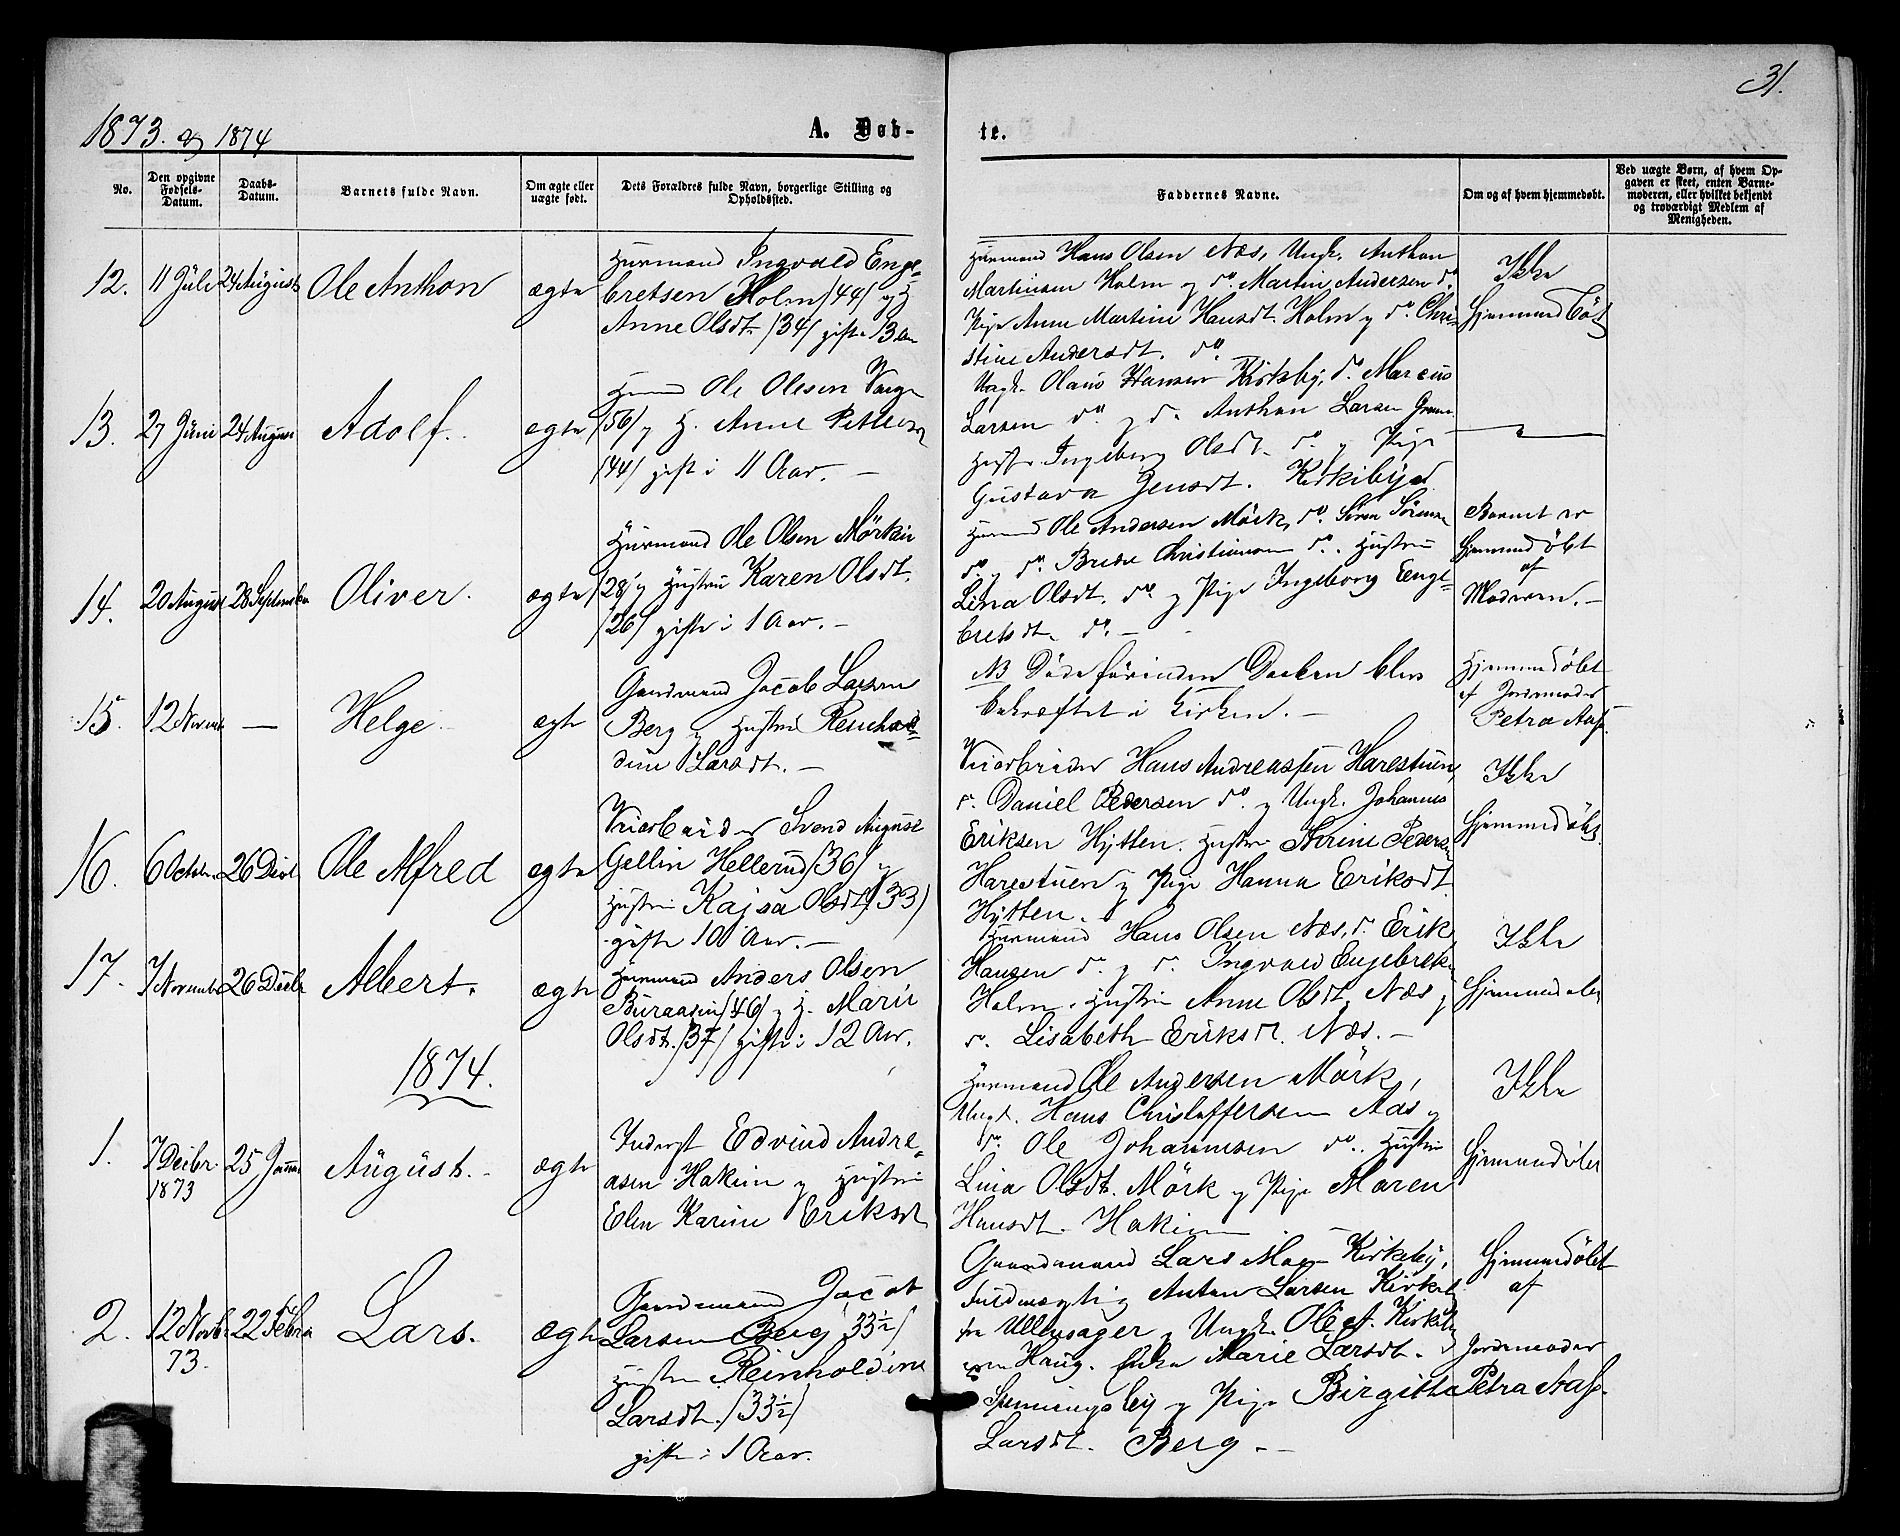 31.
1873. og 1874
A. Døb-
te.
No.
Den opgivne Fødsels-Datum.
Daabs-Datum.
Barnets fulde Navn.
Om ægte eller uægte født.
Dets Forældres fulde Navn, borgerlige Stilling og Opholdssted.
Faddernes Navne.
Om og af hvem hjemmedøbt.
Ved uægte Børn, af hvem Opgaven er skeet, enten Barnemoderen, eller hvilket bekjendt og troværdigt Medlem af Menigheden.
12. 11 Juli 24 August Ole Anthon ægte
Huusmand Ingvald Enge-
bretsen Holm /44/ og H.
Anne Olsdt. /34/ gifte 13 Aar
Huusmand Hans Olsen Næs, Ungk. Anthon
Martinsen Holm og do. Martin Andersen do.
Pige Anne Martine Hansdt. Holm og do. Chri-
stine Andersdt. do.
Ikke
Hjemmedöbt
13. 27 Juni 24 August Adolf. ægte
Ole Olesen
/56/ og H. Anne
/44/ gift i 11 Aar. —
Ungk. Olaus Hansen Kirkeby, do. Marcus
Larsen do. og do. Anthon Larsen
Ingeborg Olsdt. do. og Pige
Gustava Jensdt. Kirkebye
14. 20 August 28 September Oliver. ægte
Huusmand Ole Olsen Mörkeie
/28/ og Hustru Karen Olsdt.
/26/ gifte i 1 Aar. —
Huusmand Ole Andersen Mörk, do. Sören Sörensen
do. og do. Brede Christiansen do. Hustru
Lina Olsdt. do. og Pige Ingeborg Enge-
bretsdt. do. —
Barnet er
Hjemmedöbt
af
Moderen. —
15. 12 Novemb — Helge ægte
Gaardmand Jacob Larsen
Berg og Hustru Reinhol-
dine Larsdt. —
NB Döde förinden Daaben blev
bekræftet i Kirken. —
Hjemmedöbt
af Jordemoder
Petra Aas.
16. 6 Octobr. 26 Decbr Ole Alfred ægte
Veiarbeider Svend August
Gellin Hellerud /36/ og
Hustru Kajsa Olsdt /33/
gifte 10 Aar. —
Veiarbeider Hans Andreassen Harestuen,
do. Daniel Pedersen do. og Ungk. Johannes
Eriksen Hytten. Hustru Pedersdt
Harestuen og Pige Hanna Eriksdt
Hytten.
Ikke
Hjemmedöbt.
17. 7 November 26 Decbr Albert. ægte
Huusmand Anders Olsen
Buraasen /46/ og H. Marie
Olsdt. /37/ gifte i 12 Aar.
Huusmand Hans Olsen Næs, do. Erik
Hansen do. og do. Ingvald Engebrets.
Holm. Hustru Anne Olsdt. Næs og
do. Lisabeth Eriksdt. Næs. —
Ikke
Hjemmedøbt
1874.
1. 7 Decbr. 1873 25 Januar August. ægte
Inderst Edvind Andre-
asen Hakien og Hustru
Elen Karine Eriksdt
Huusmand Ole Andersen Mörk,
Ungk. Hans Christoffersen Aas og
do. Ole Johannesen do. Hustru
Lina Olsdt. Mörk og Pige Maren
Hansdt. Hakien
Ikke
Hjemmedöbt
2. 12 Novbr 73. 22 Febru Lars. ægte
Gaardmand Jacob
Larsen Berg /33½/
Hustru Reinholdine
Larsdt. /33½/
gifte i 1 Aar.
Gaardmand Lars Kirkeby,
Fuldmægtig Anton Larsen Kirkeby
fra Ullensager og Ungk. Ole A. Kirkeby
Haug. Enke Marie Larsdt.
og Pige Birgitta
Larsdt. Berg. —
Hjemmedöbt
af
Jordemoder
Petra Aas.